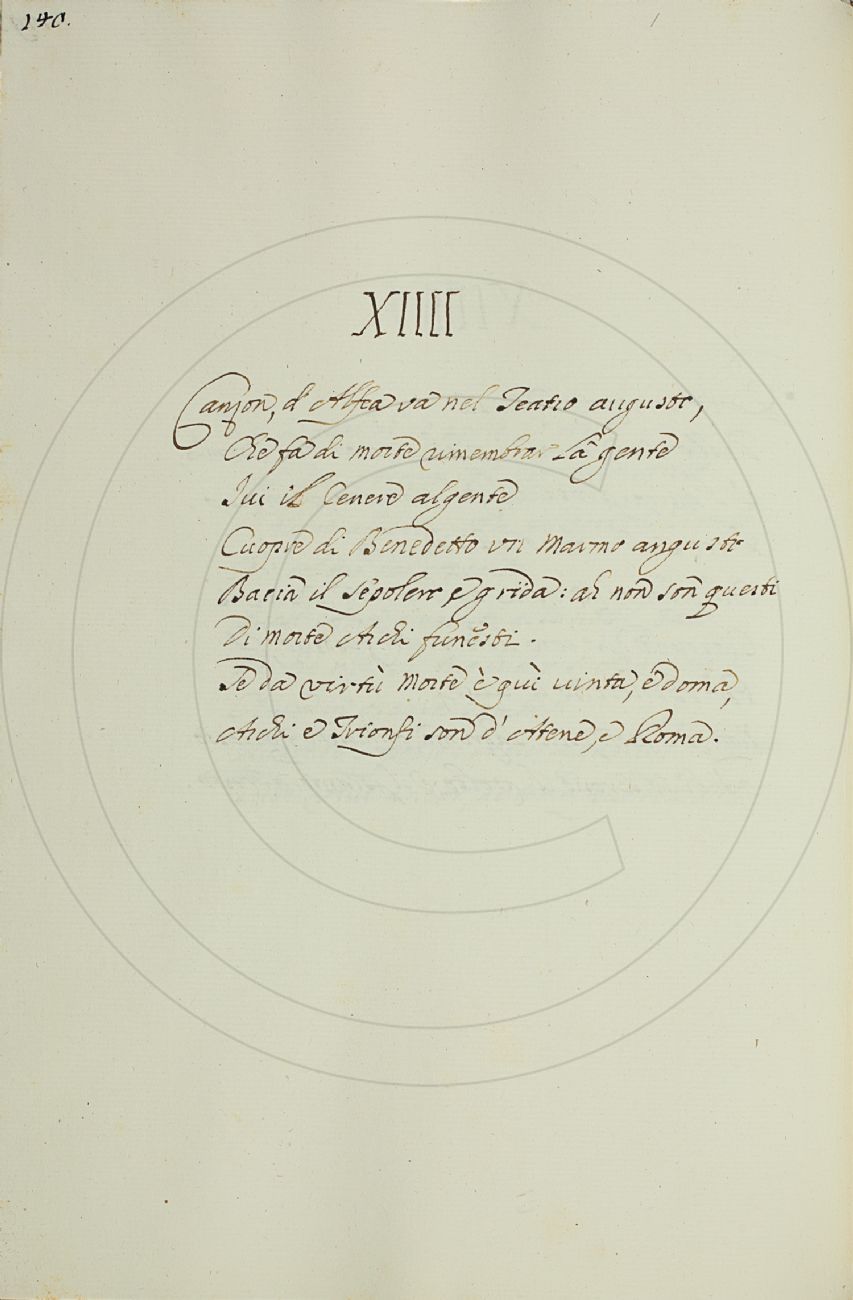 140.
XIIII
Canzon, d'Alfea va nel Teatro augusto,
Che fa di morte rimembrar la gente
Ivi il Cenere algente
Cuopre di Benedetto un Marmo angusto
Bacia il sepolcro, e grida: ah non son questi
Di morte Archi funesti.
Se da virtù Morte è quì vinta, e doma,
Archi e Trionfi son d'Atene, e Roma.